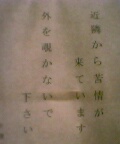 近隣から苦情が
来ています
外を覗かないで
下さい